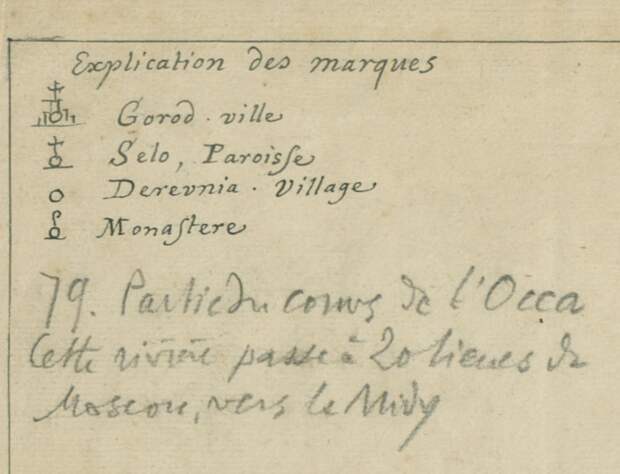 Explication des marques
Gorod . ville
Selo, Paroiſse
Derevnia . Village
Monaſtere
79. Partie du cours de l'Occa
Cette rivière passe à 20 lieues de
Moscou, vers le Midy